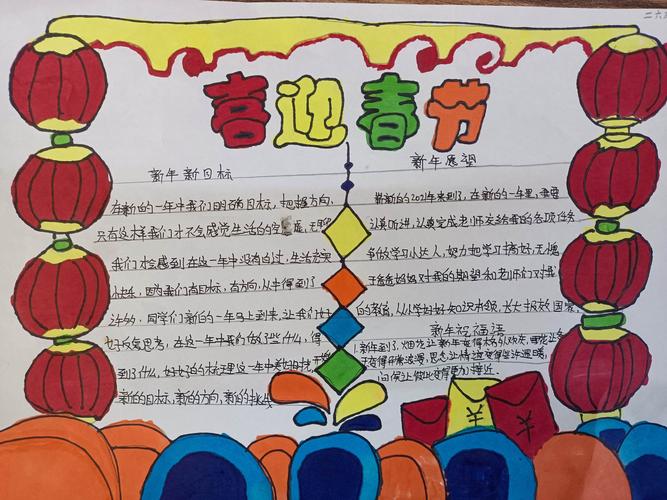 二六
喜迎春节
新年新目标
在新的一年中我们明确目标，把握方向、
只有这样我们才不会感觉生活的空
我们才会感到在这一年中没有白过，生活充实
快乐，因为我们有目标，有方向，从中得到了
许多。同学们新的一年马上到来，让我们好
好反复思考，在这一年中我们做了些什么，得
到了什么，好好的梳理这一年中
新的目标，新的方向，新的挑战
新年愿望
崭新的2021年来到了，在新的一年里，我要
认真听讲，认真完成老师交给我的各项任务
争做学习小达人，努力把学习搞好，无愧
于爸爸妈妈对我的期望和老师们对我
的教育，从小学好好知识本领，长大报效国家。
新年祝福语
1.新年到了，烟花让新年变得精彩欢庆，
变得非常浪漫，思念让情谊变得温暖，
问候让彼此变得更为接近。
¥
¥